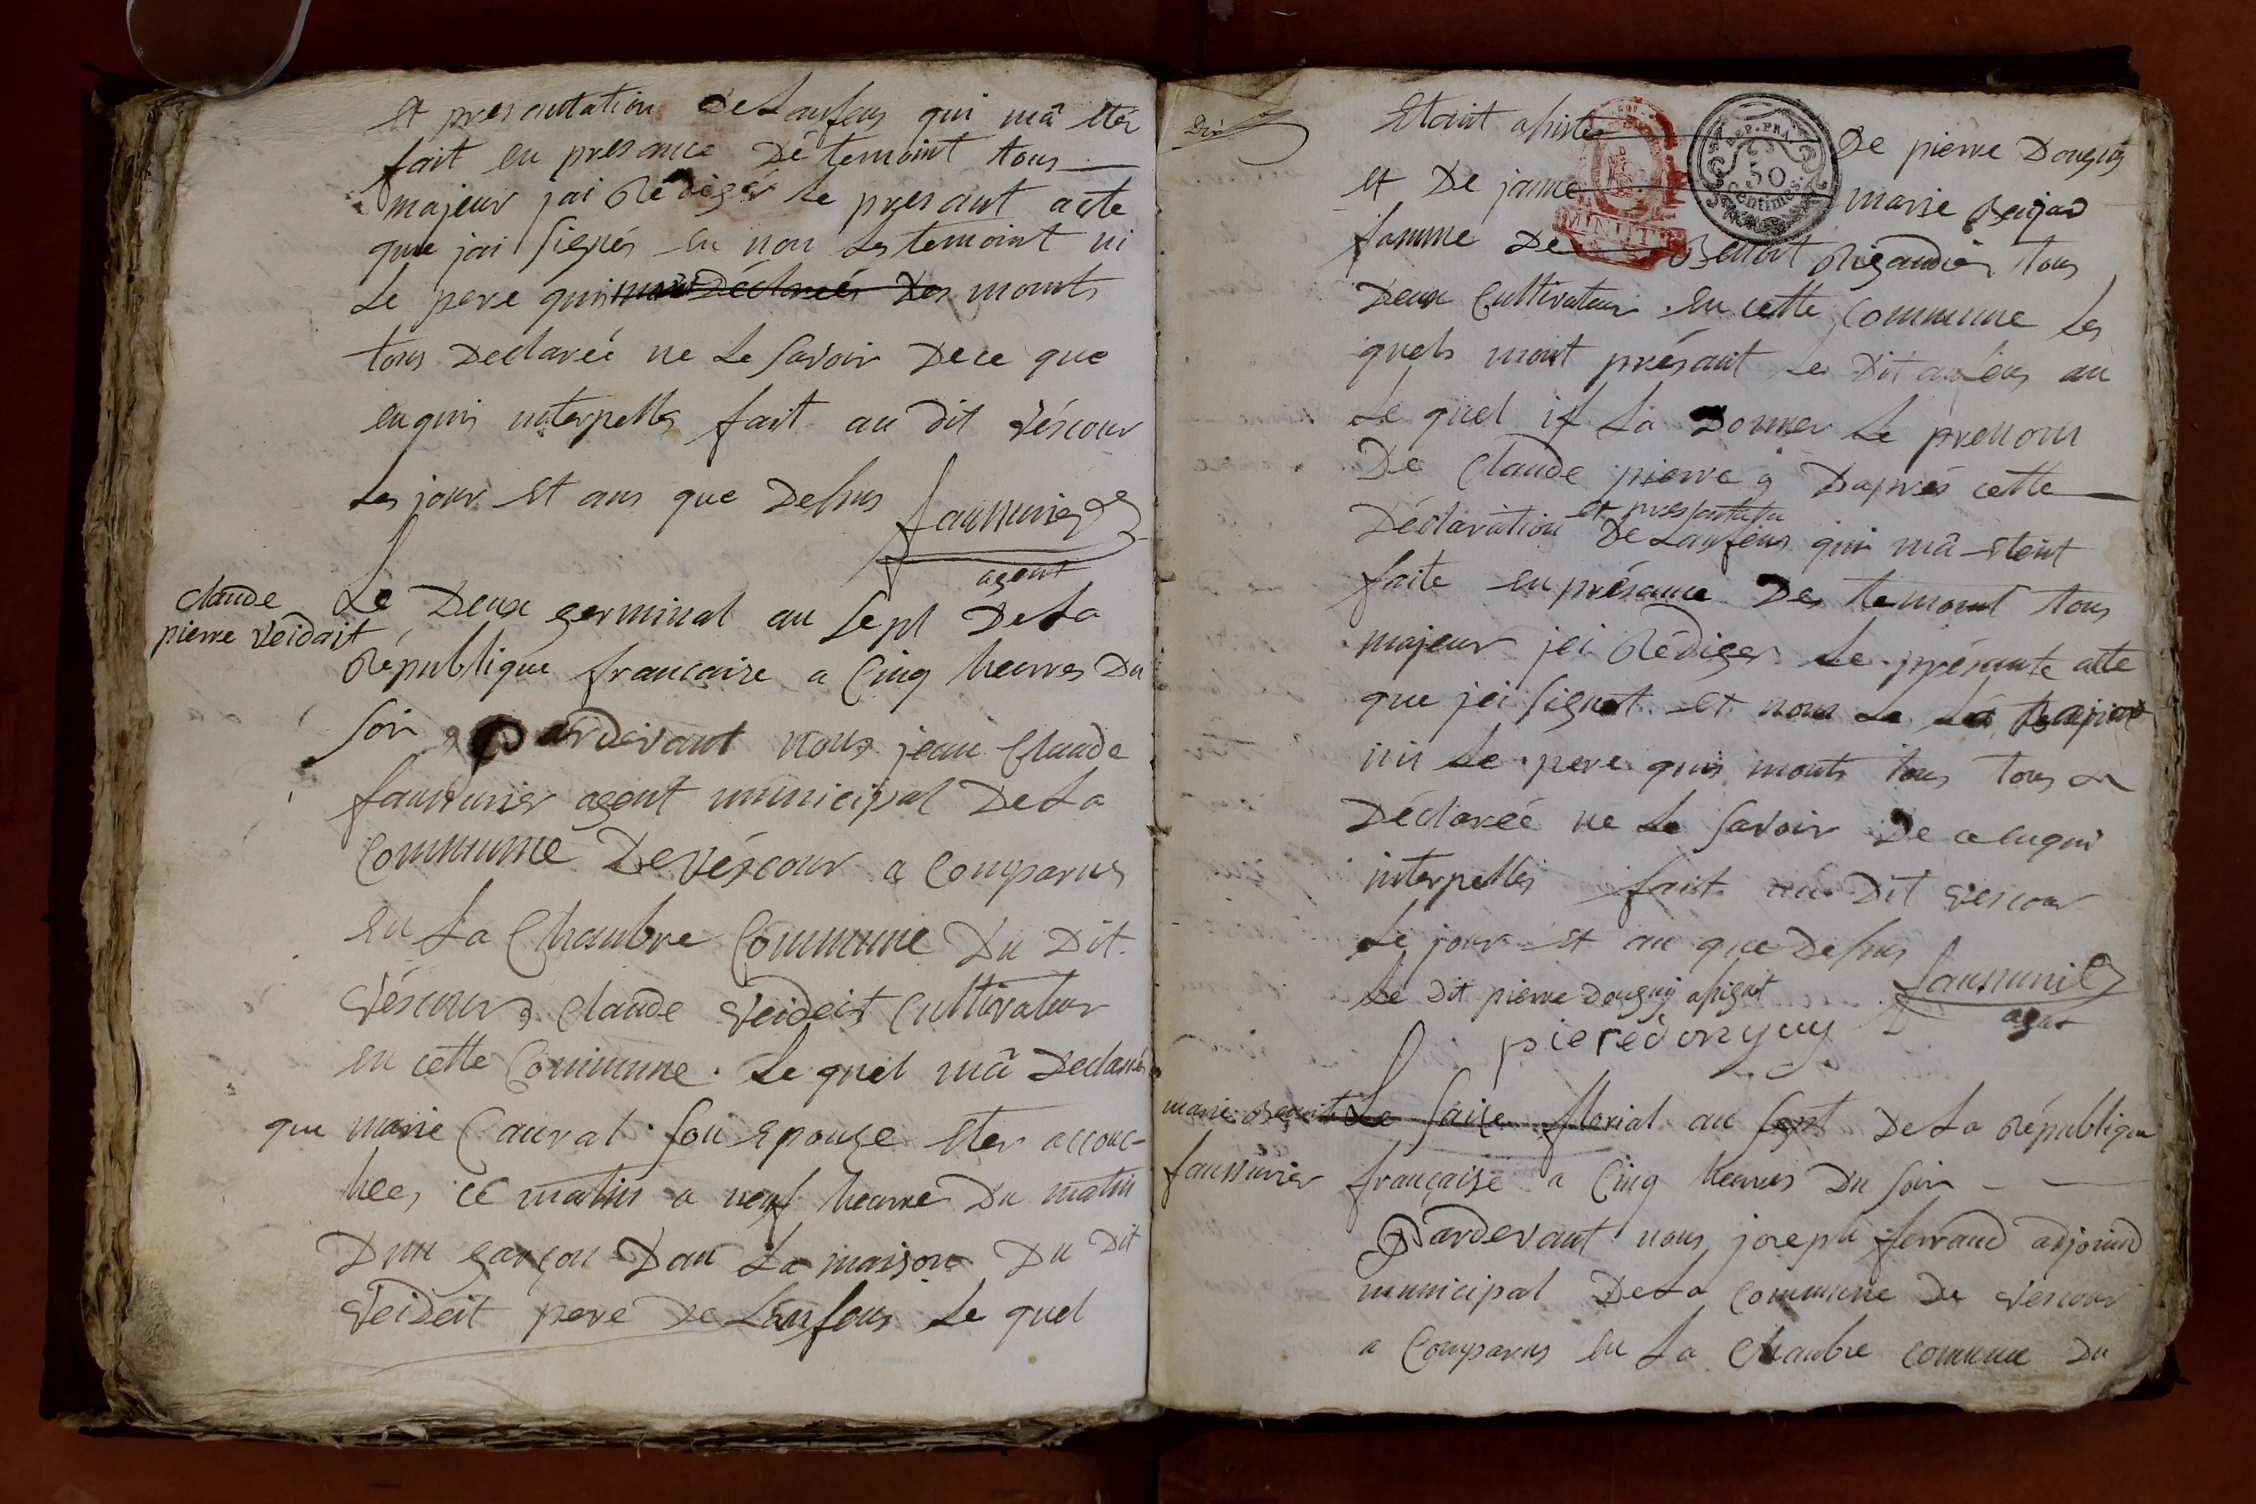 et presantation de Lanfens qui mâ eter
fait en presance de temoint tous
majeur jai Rédiger Le presant acte
que jai signés en non Les temoint ni
Le pere quis Déclarés Des monts
tous Declareé ne Le savoir Dece que
enquis interpellés fait au dit véscour
Les jour et ans que Dessus faussurier
agent
claude
pierre veidait
Le Deux germinal an sept De La
République francaire a Cinq heures Du
soir Pardevant nous jean Claude
faussurier agent municipal De La
Commune De véscour a Comparus
en La Chambre Commune Du Dit
véscour claude veideit Cultivateur
en cette Commune. Le quel mâ Declaré
que marie Caurat son epouze eter accouc-
hee, ce matin a neuf heurre Du matin
Dun garçon Dan La maison Du Dit
veideit pere De Lenfens Le quel
Etoint assistes De pierre Dougug
REP. FRA.
50
Centimes.
MINUTE
et De janne marie
famme De Benoit Rigaudier tous
Deux Cultivateur en cette Commune Les
quels mont présant Le Dit anfens au
Le quel if La Donner Le prenom
De Claude pierre Daprés cette
et presantation
Déclaration De Lanfens qui mâ etent
faite en présance Des temoint tous
majeur jei Rédiger Le présante acte
que jei signet et non Le Les
nis Le pere quis monts tous tous
Déclareé ne Le savoir De ce enquis
interpellés fait au Dit vescour
Le jour et an que Dessus
Le dit pierre Douguy asignet faussurier
agent
pieredonguy
marie Benoite
faussurier
Le saize florial an sept De La République
française a Cinq heurres Du soir
Pardevant nous joseph ferrand adjoind
municipal De La Commune De vescour
a Comparus en La Chambre comune Du